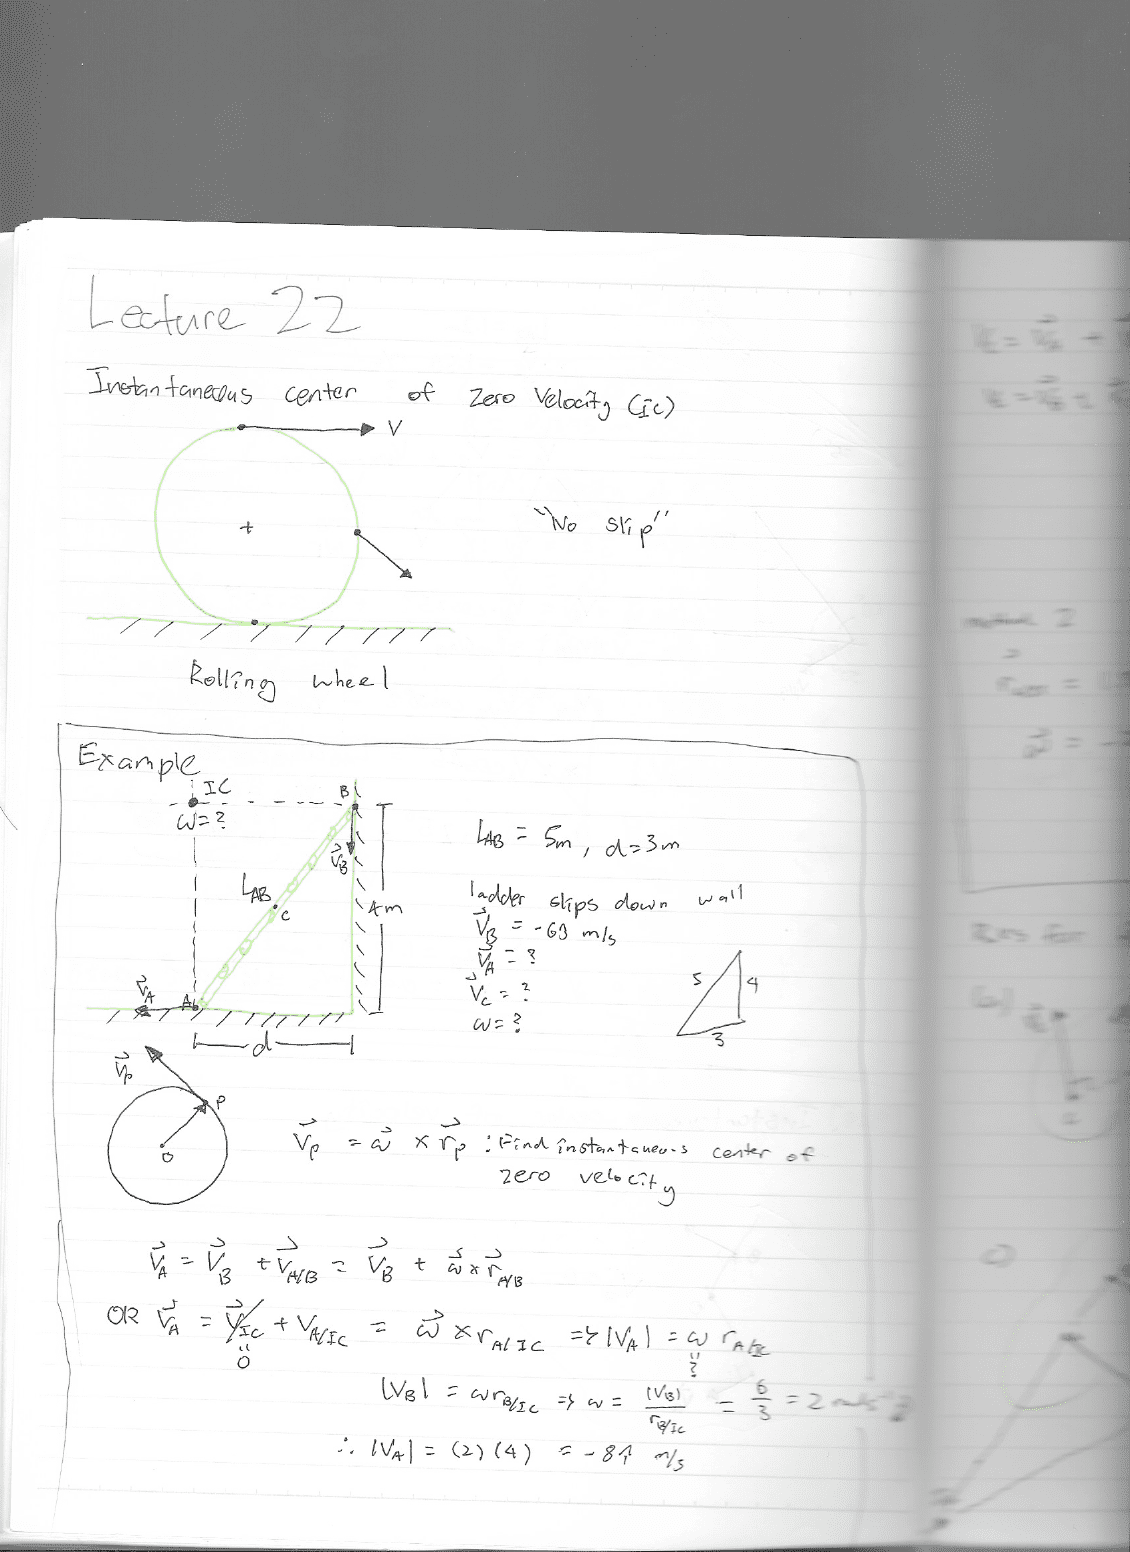 Lecture 22
Instantaneous center of Zero Velocity (Ic)
V
+
"No slip"
Rolling wheel
Example
IC
B
ω=?
L_AB = 5m, d=3m
V⃗_B
L_AB
C
4m
ladder slips down wall
V⃗_B = -6ĵ m/s
V⃗_A = ?
V⃗_C = ?
ω=?
5
4
3
V⃗_A
A
d
V⃗_P
P
O
V⃗_P = ω⃗ × r⃗_P : Find instantaneous center of
zero velocity
V⃗_A = V⃗_B + V⃗_A/B = V⃗_B + ω⃗ × r⃗_A/B
OR V⃗_A = V⃗_IC + V_A/IC = ω⃗ × r_A/IC => |V_A| = ω r_A/IC
0
?
|V_B| = ω r_B/IC => ω = |V_B| / r_B/IC = 6/3 = 2
∴ |V_A| = (2)(4) = -8î m/s
V⃗_A +
method 2